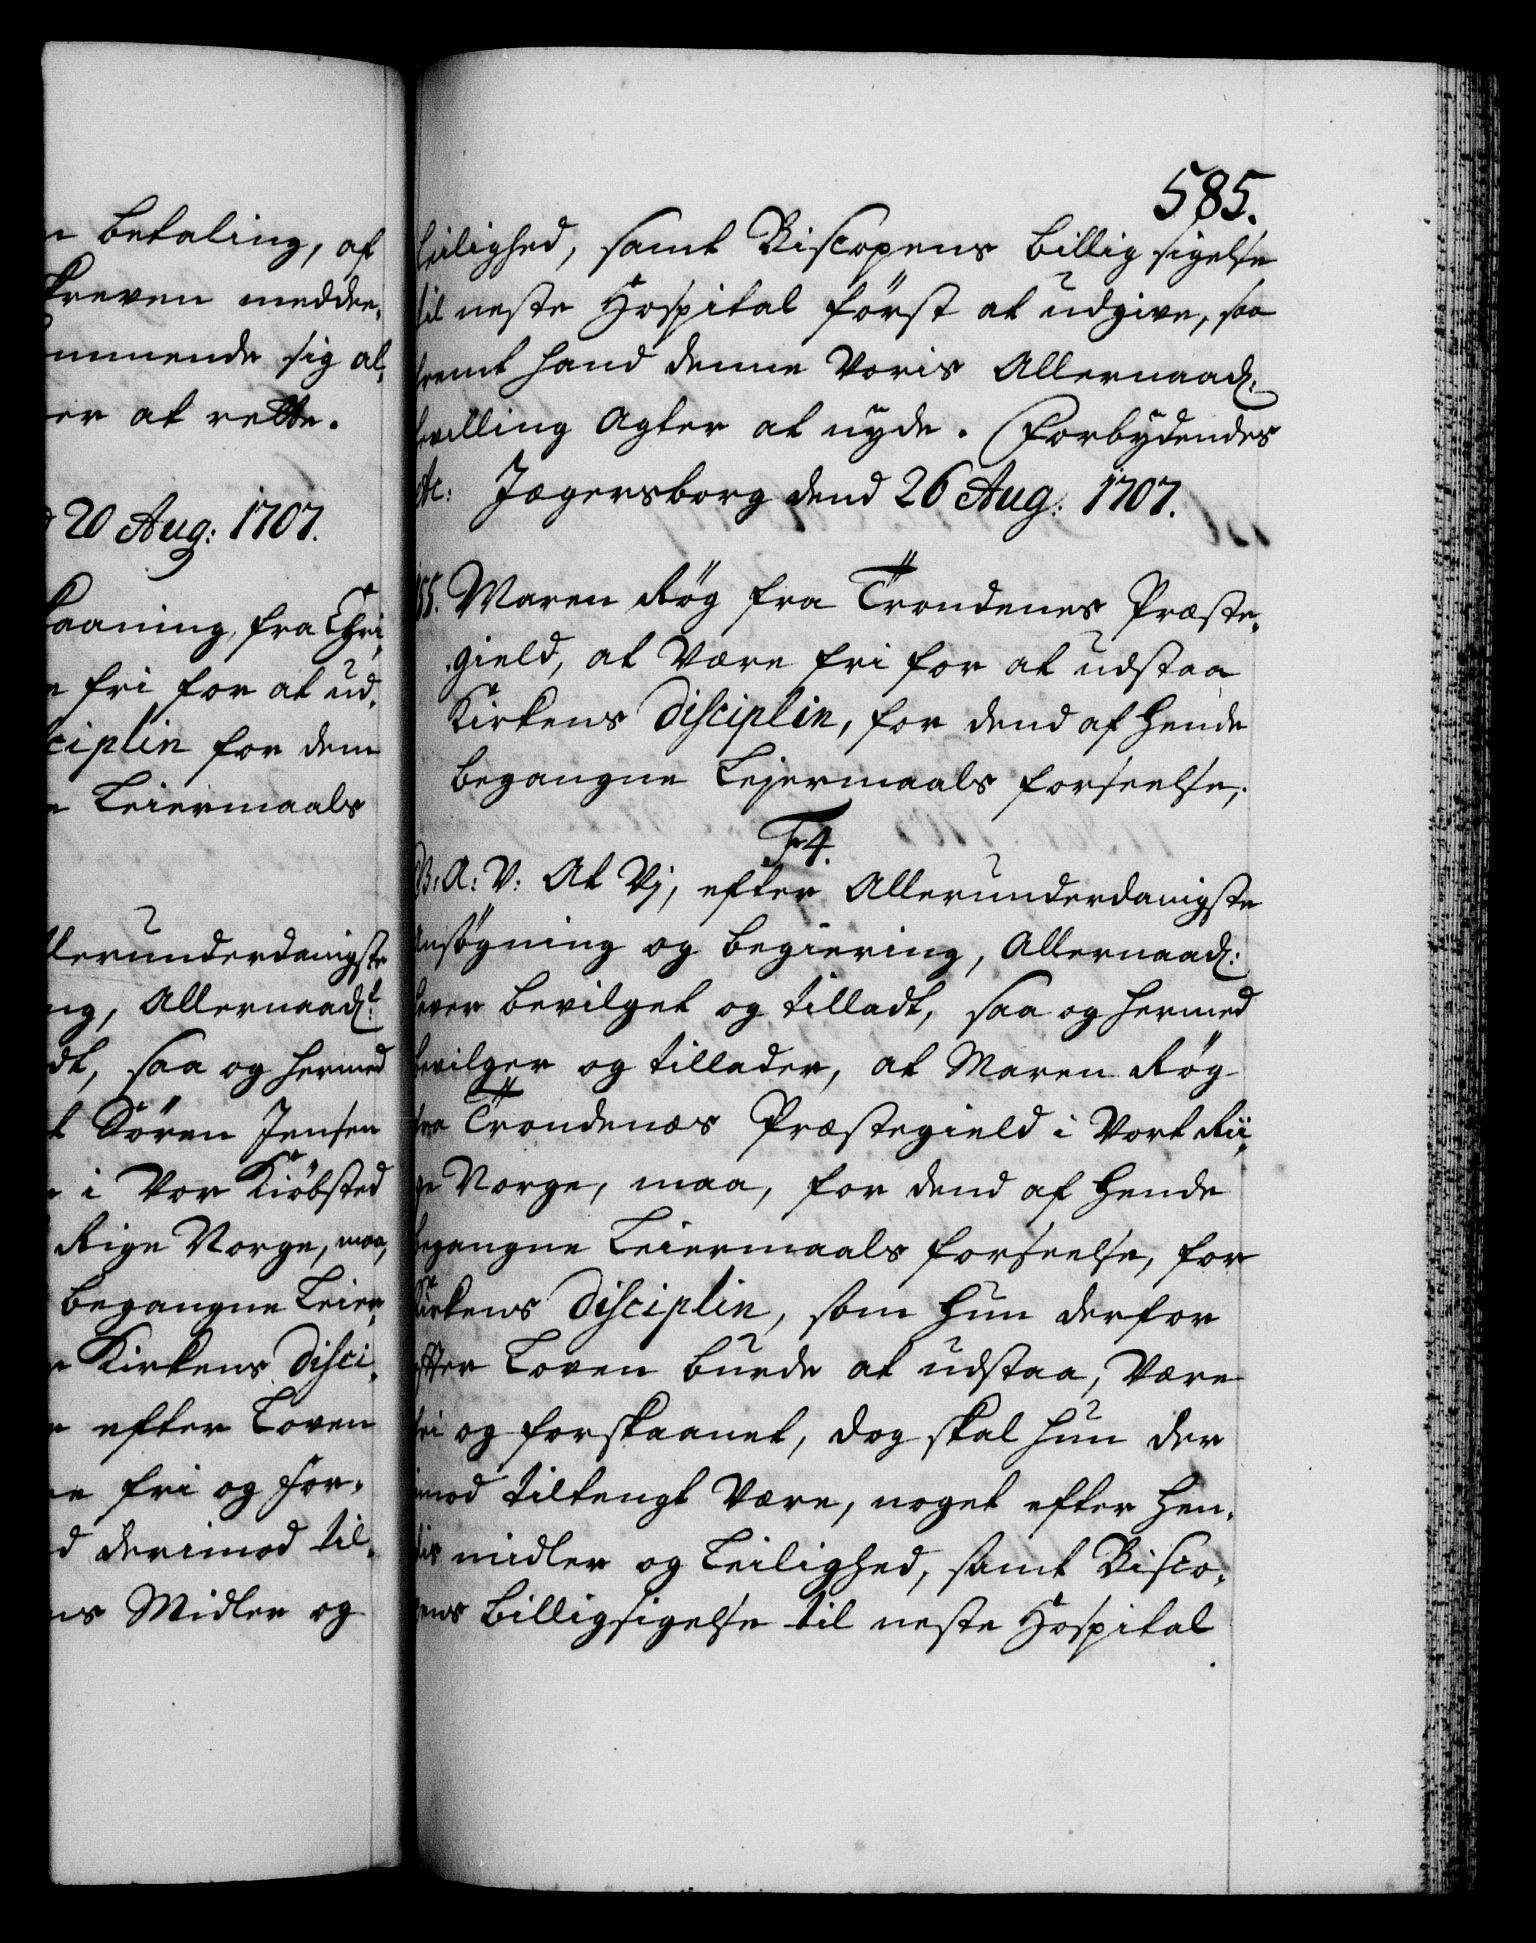 betaling, af
kreven meddee,
ommende sig al,
er at rette.
20 Aug: 1707.
kaaning, fra Chri,
fri for at ud,
ciplin for dem
Leiermaals
llerunderdanigste
ng, Allernaad:
dt, saa og hermed
Søren Jensen
i Vor Kiöbsted
Rige Norge, maa,
begangne Leier,
Kirkens Disci,
efter Loven
fri og for,
d derimod til,
ns Midler og
585.
leilighed, samt Biscopens billig sigelse
til neste Hospital först at udgive, saa
fremt hand denne Voris Allernaad:
bevilling Agter at nyde. Forbydendes
etc: Jægersborg dend 26 Aug: 1707.
155. Maren Røg fra Trondenes Præste,
gield, at Være fri for at udstaa
Kirkens Disciplin, for dend af hende
begangne Lejermaals forseelse,
Fr4.
B: A: V: At Vj, efter Allerunderdanigste
Ansøgning og begiering, Allernaad:
hever bevilget og tilladt, saa og hermed
bevilger og tillader, at Maren Røg
fra Trondenæs Præstegield i Vort Rii,
ge Norge, maa, for dend af hende
begangne Leiermaals forseelse, for
Kirkens Disciplin, som hun derfor
efter Loven burde at udstaa, Være
fri og forskaanet, dog skal hun der
imod tiltengt Være, noget efter hen,
dis midler og Leilighed, samt Bisco,
pens billigsigelse til neste Hospital